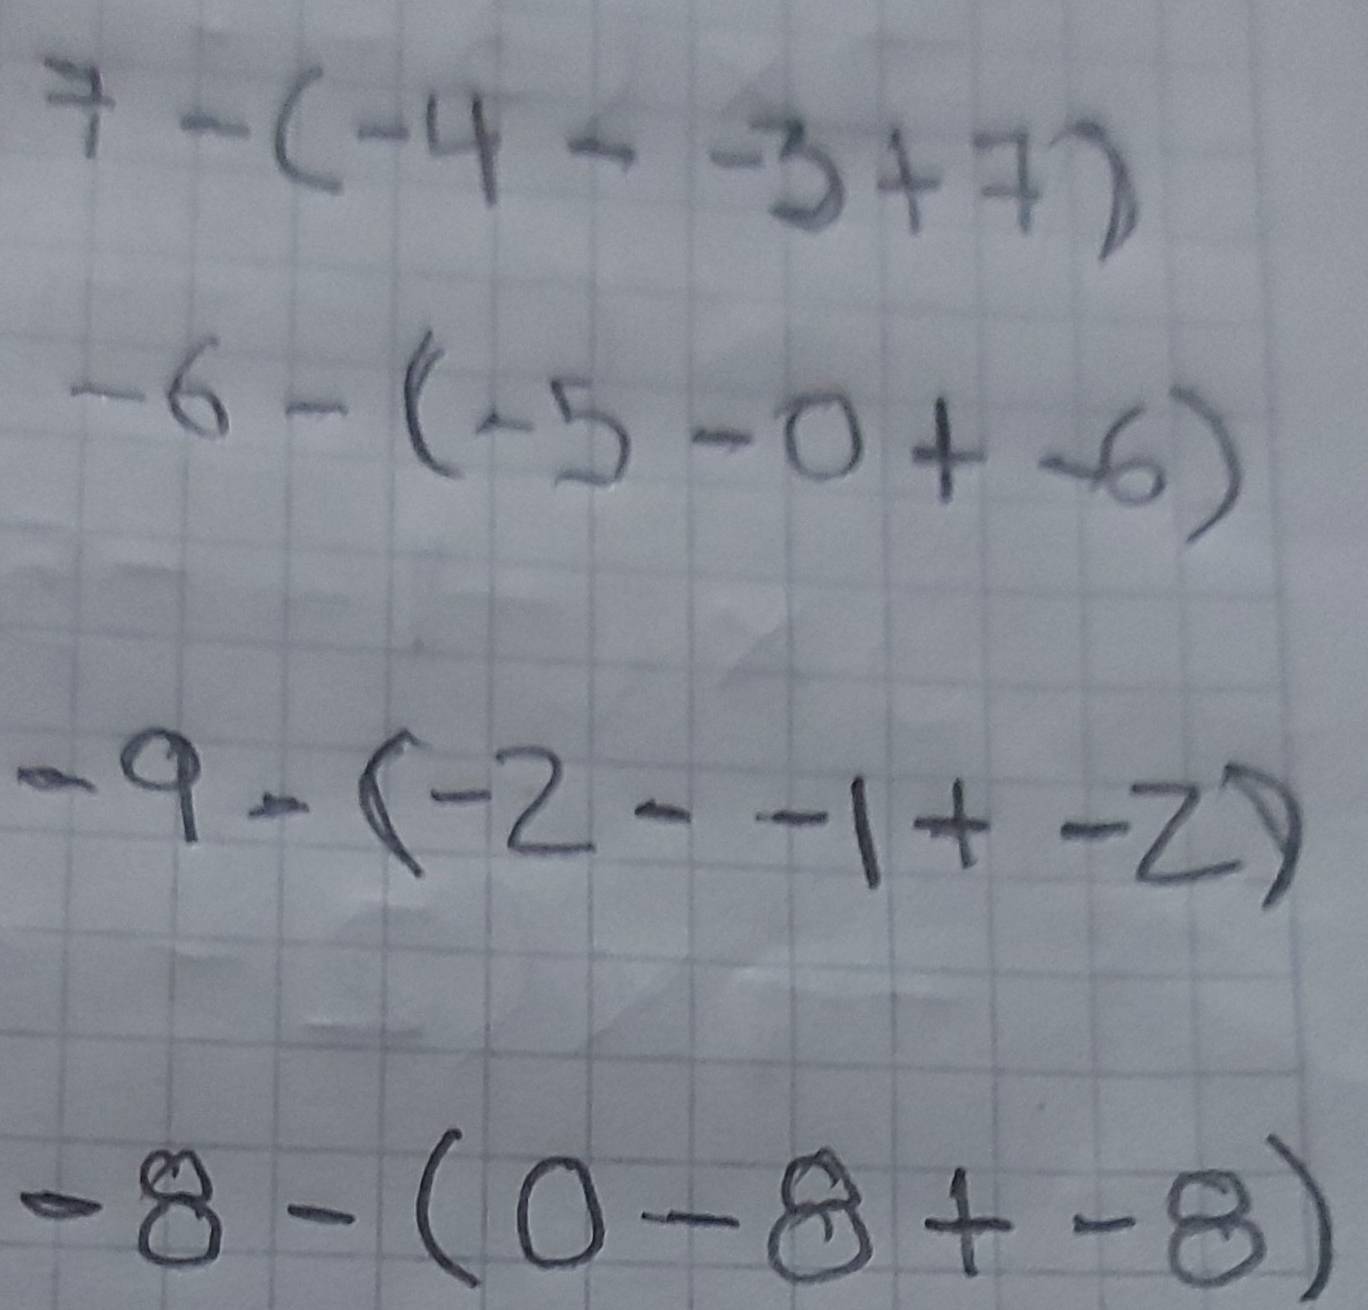 7 - (-4 - -3 + 7)
-6 - (-5 - 0 + -6)
-9 - (-2 - -1 + -2)
-8 - (0 - 8 + -8)